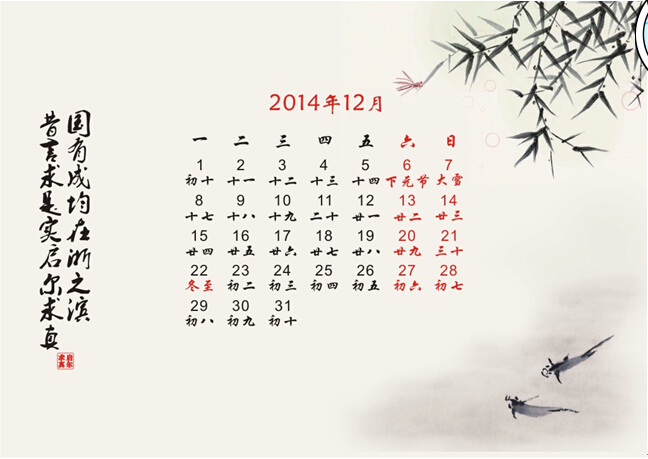 国有成均在浙之滨
昔言求是实启尔求真
启尔
求真
2014年12月
一 二 三 四 五 六 日
1 2 3 4 5 6 7
初十 十一 十二 十三 十四 下元节 大雪
8 9 10 11 12 13 14
十七 十八 十九 二十 廿一 廿二 廿三
15 16 17 18 19 20 21
廿四 廿五 廿六 廿七 廿八 廿九 三十
22 23 24 25 26 27 28
冬至 初二 初三 初四 初五 初六 初七
29 30 31
初八 初九 初十